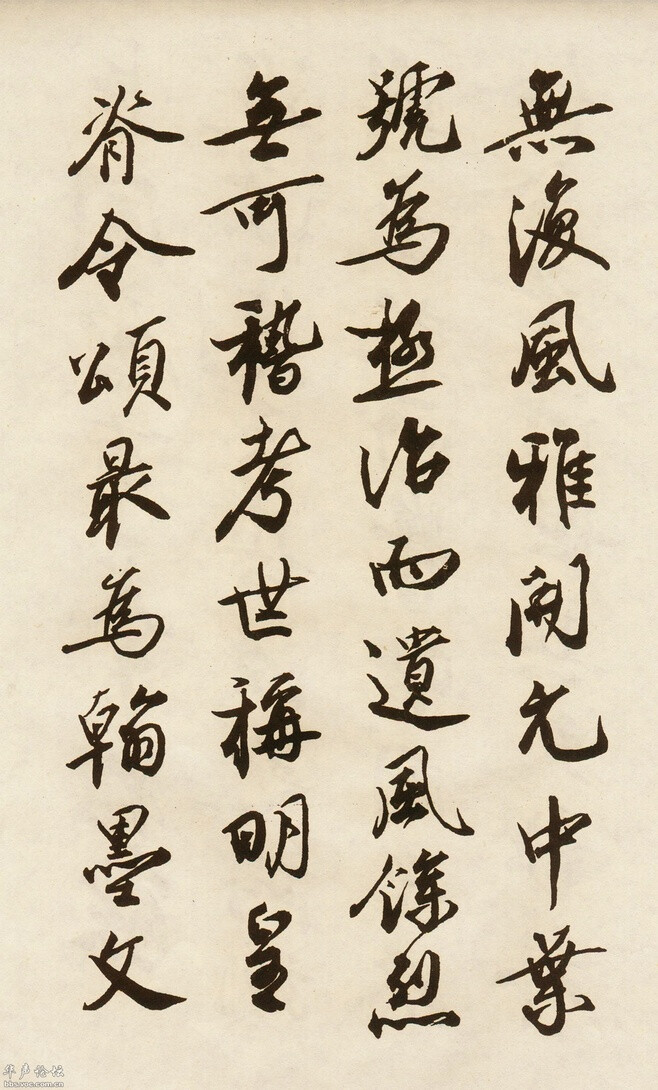 無復風雅開元中葉
號爲極治而遺風餘烈
無可稽考世稱明皇
脊令頌最爲翰墨文
华声论坛
bbs.voc.com.cn